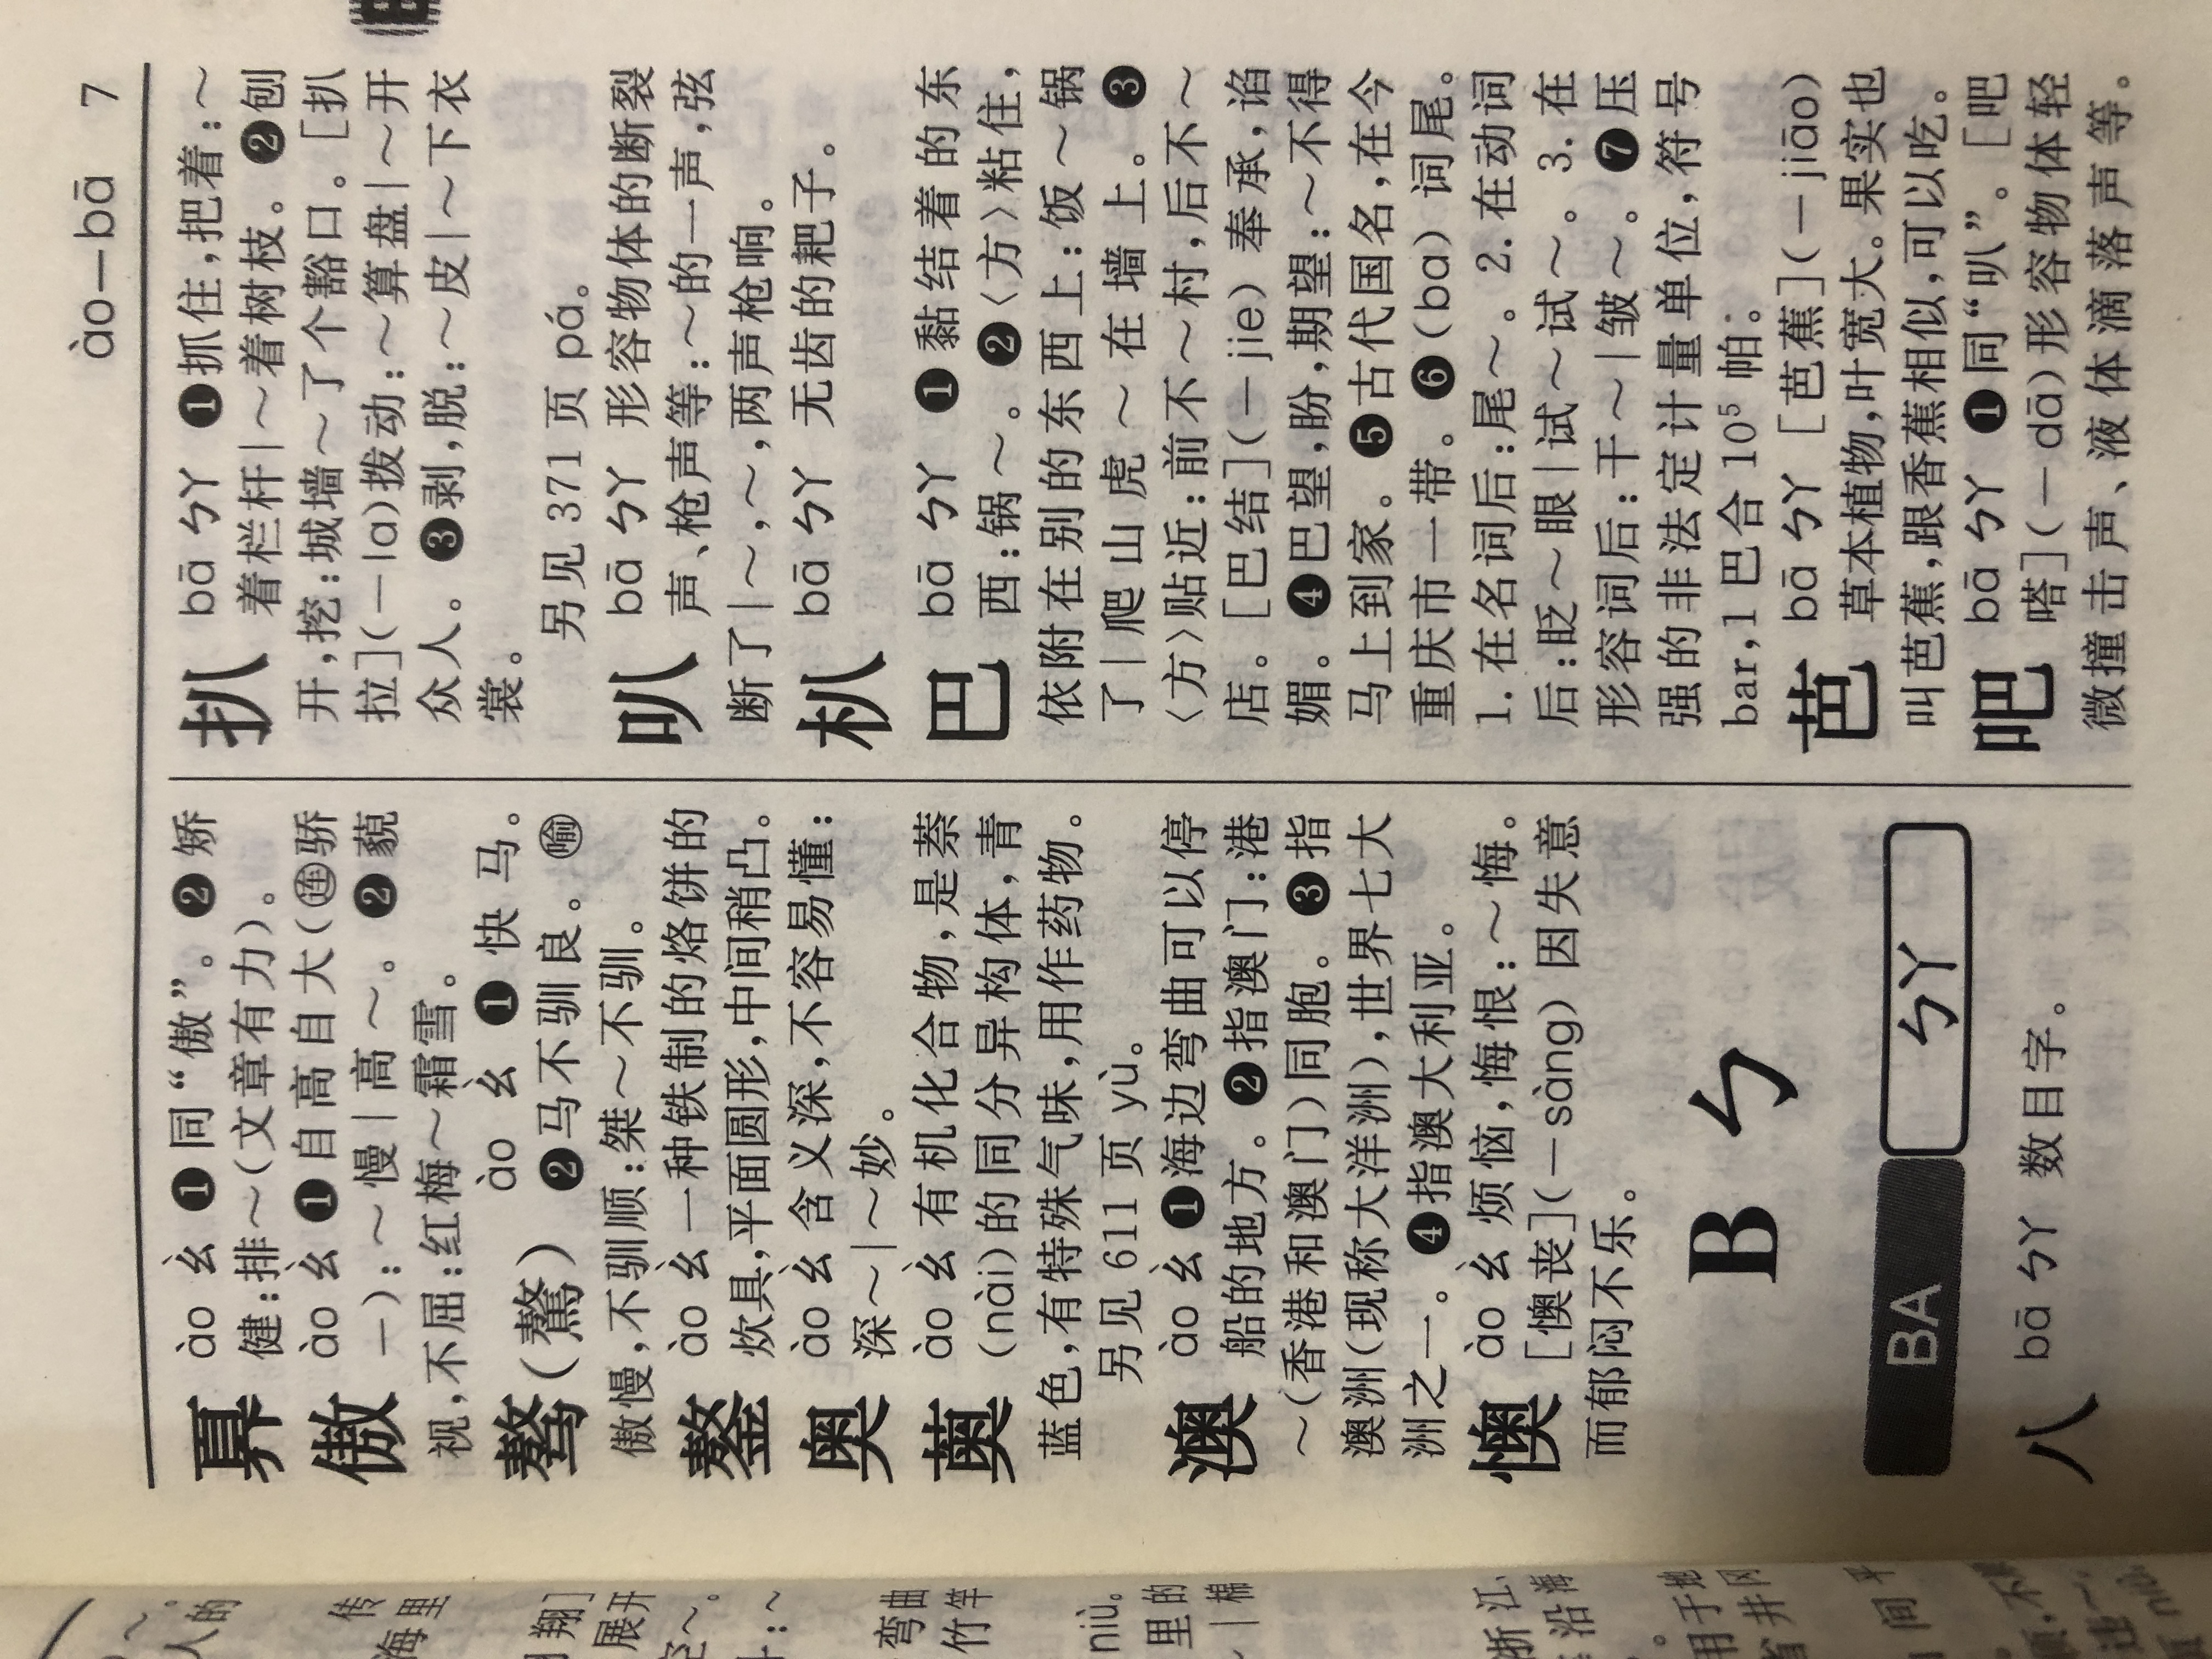 ào—bā 7
奡 ào ㄠˋ ❶同“傲”。❷矫
健:排～(文章有力)。
傲 ào ㄠˋ ❶自高自大(㊥骄
—):～慢|高～。❷藐
视,不屈:红梅～霜雪。
骜(驁) ào ㄠˋ ❶快马。
❷马不驯良。㊥
傲慢,不驯顺:桀～不驯。
鏊 ào ㄠˋ 一种铁制的烙饼的
炊具,平面圆形,中间稍凸。
奥 ào ㄠˋ 含义深,不容易懂:
深～|～妙。
薁 ào ㄠˋ 有机化合物,是萘
(nài)的同分异构体,青
蓝色,有特殊气味,用作药物。
另见 611 页 yù。
澳 ào ㄠˋ ❶海边弯曲可以停
船的地方。❷指澳门:港
～(香港和澳门)同胞。❸指
澳洲(现称大洋洲),世界七大
洲之一。❹指澳大利亚。
懊 ào ㄠˋ 烦恼,悔恨:～悔。
[懊丧](—sàng)因失意
而郁闷不乐。
B ㄅ
BA ㄅㄚ
八 bā ㄅㄚ 数目字。
扒 bā ㄅㄚ ❶抓住,把着:～
着栏杆|～着树枝。❷刨
开,挖:城墙～了个豁口。[扒
拉](—la)拨动:～算盘|～开
众人。❸剥,脱:～皮|～下衣
裳。
另见 371 页 pá。
叭 bā ㄅㄚ 形容物体的断裂
声、枪声等:～的一声,弦
断了|～,～,两声枪响。
朳 bā ㄅㄚ 无齿的耙子。
巴 bā ㄅㄚ ❶黏结着的东
西:锅～。❷〈方〉粘住,
依附在别的东西上:饭～锅
了|爬山虎～在墙上。❸
〈方〉贴近:前不～村,后不～
店。[巴结](—jie)奉承,谄
媚。❹巴望,盼,期望:～不得
马上到家。❺古代国名,在今
重庆市一带。❻(ba)词尾。
1. 在名词后:尾～。2. 在动词
后:眨～眼|试～试～。3. 在
形容词后:干～|皱～。❼压
强的非法定计量单位,符号
bar,1 巴合 10⁵ 帕。
芭 bā ㄅㄚ [芭蕉](—jiāo)
草本植物,叶宽大。果实也
叫芭蕉,跟香蕉相似,可以吃。
吧 bā ㄅㄚ ❶同“叭”。[吧
嗒](—dā)形容物体轻
微撞击声、液体滴落声等。